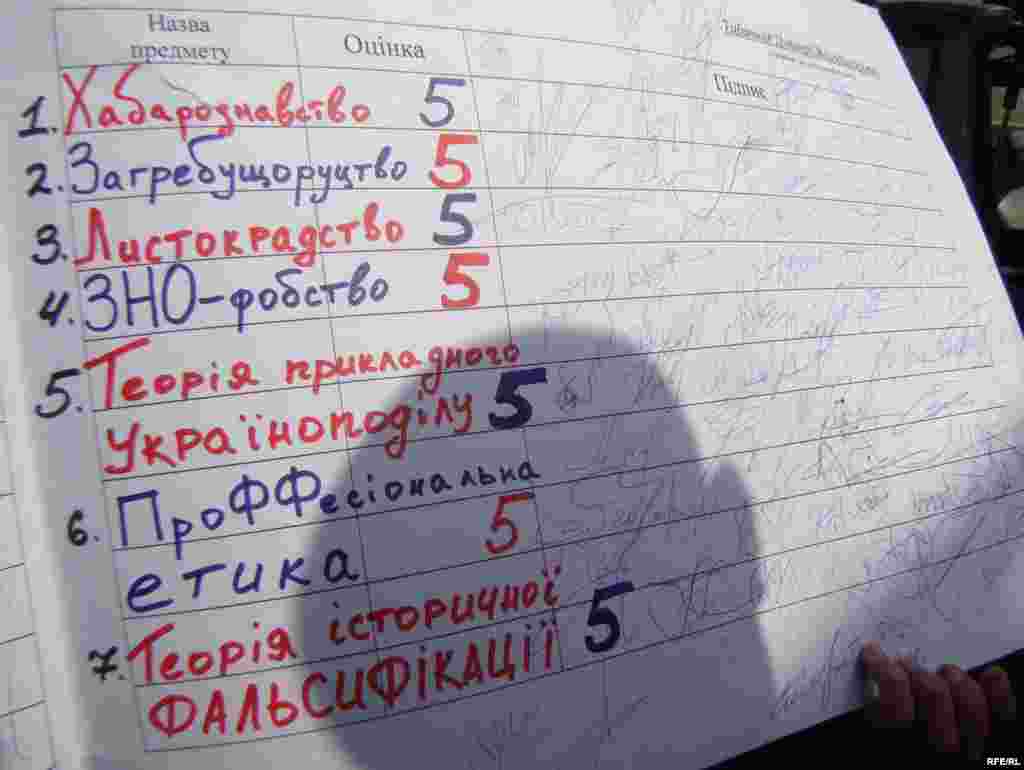 Назва предмету Оцінка Підпис
1. Хабарознавство 5
2. Загребущоруцтво 5
3. Листокрадство 5
4. ЗНО-фобство 5
5. Теорія прикладного
Україноподілу 5
6. ПроФФесіональна
етика 5
7. Теорія історичної
ФАЛЬСИФІКАЦІЇ 5
RFE/RL